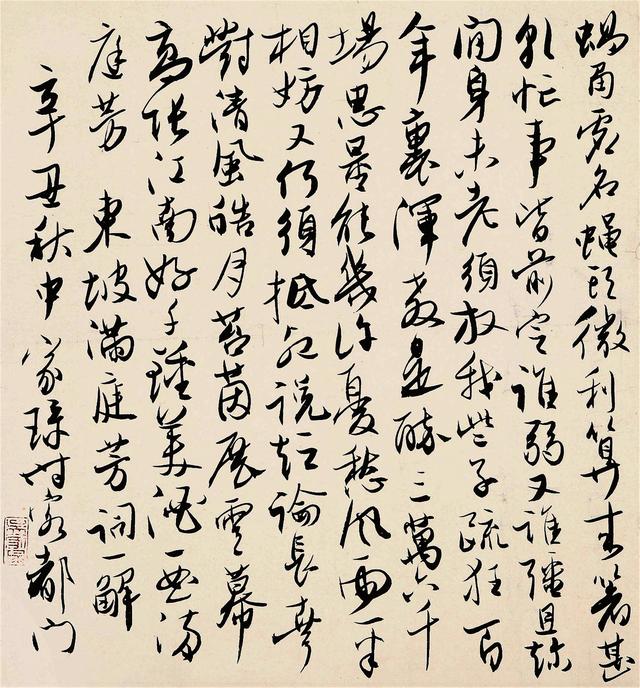 蝸角虛名蠅頭微利算來著甚
乾忙事皆前定誰弱又誰彊且趁
閒身未老須放我些子疏狂百
年裏渾教是醉三萬六千
場思量能幾許憂愁風雨一半
相妨又何須抵死說短論長幸
對清風皓月苔茵展雲幕
高張江南好千鍾美酒一曲滿
庭芳 東坡滿庭芳詞一解
辛丑秋中家琭時客都門